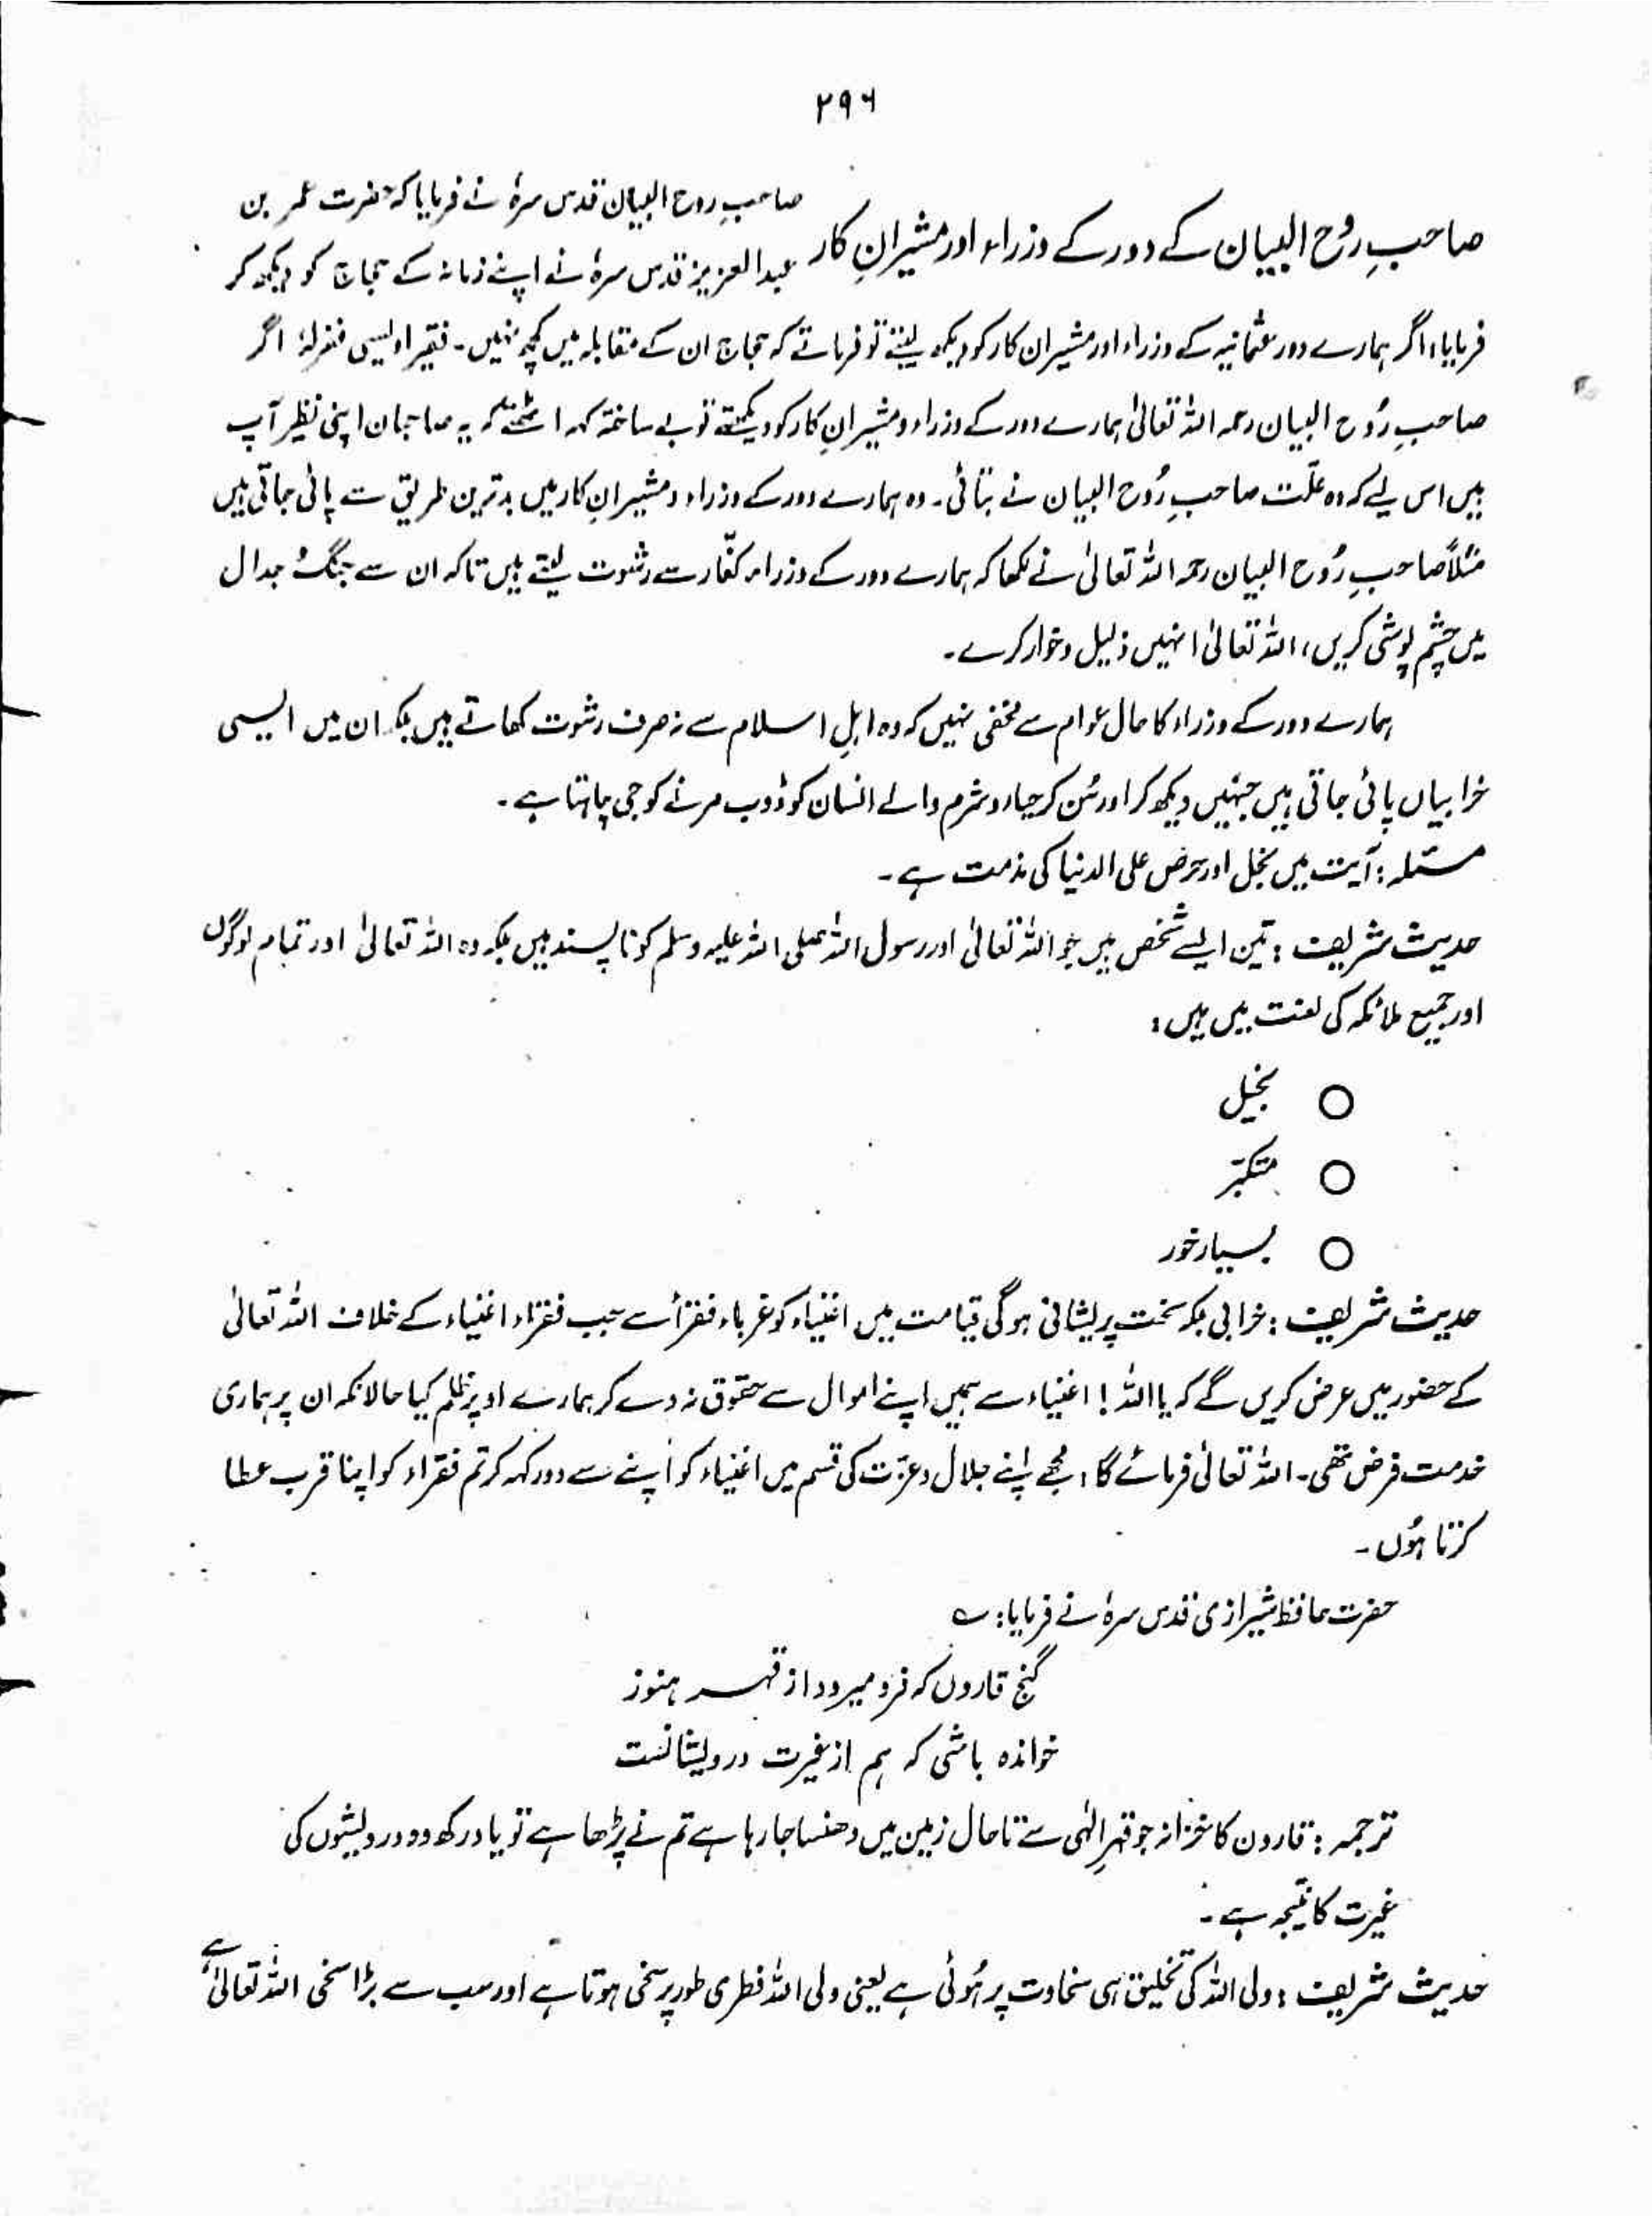 ۲۹۶
صاحبِ رُوح البیان کے دور کے وزراء اور مشیرانِ کار
صاحبِ روح البیان قدس سرہٗ نے فرمایا کہ حضرت عمر بن
عبد العزیز قدس سرہٗ نے اپنے زمانہ کے حجاج کو دیکھ کر
فرمایا، اگر ہمارے دور عثمانیہ کے وزراء اور مشیران کار کو دیکھ لیتے تو فرماتے کہ حجاج ان کے مقابلہ میں کچھ نہیں۔ فقیر اویسی غفرلہٗ اگر
صاحبِ رُوح البیان رحمہ اللہ تعالیٰ ہمارے دور کے وزراء و مشیرانِ کار کو دیکھتے تو بے ساختہ کہہ اٹھتے کہ یہ صاحبان اپنی نظیر آپ
ہیں اس لیے کہ وہ علّت صاحبِ رُوح البیان نے بتائی۔ وہ ہمارے دور کے وزراء و مشیرانِ کار میں بدترین طریق سے پائی جاتی ہیں
مثلاً صاحبِ رُوح البیان رحمہ اللہ تعالیٰ نے لکھا کہ ہمارے دور کے وزراء کفّار سے رشوت لیتے ہیں تاکہ ان سے جنگ و جدال
میں چشم پوشی کریں، اللہ تعالیٰ انہیں ذلیل و خوار کرے۔
ہمارے دور کے وزراء کا حال عوام سے مخفی نہیں کہ وہ اہلِ اسلام سے نہ صرف رشوت کھاتے ہیں بلکہ ان میں ایسی
خرابیاں پائی جاتی ہیں جنہیں دیکھ کر اور سُن کر حیاء و شرم والے انسان کو ڈوب مرنے کو جی چاہتا ہے۔
مسئلہ : آیت میں بخل اور حرص علی الدنیا کی مذمت ہے۔
حدیث شریف : تین ایسے شخص ہیں جو اللہ تعالیٰ اور رسول اللہ صلی اللہ علیہ وسلم کو ناپسند ہیں بلکہ وہ اللہ تعالیٰ اور تمام لوگوں
اور جمیع ملائکہ کی لعنت میں ہیں :
○ بخیل
○ متکبّر
○ بسیارخور
حدیث شریف : خرابی بلکہ سخت پریشانی ہوگی قیامت میں اغنیاء کو غرباء فقرأ سے جب فقراء اغنیاء کے خلاف اللہ تعالیٰ
کے حضور میں عرض کریں گے کہ یا اللہ! اغنیاء سے ہمیں اپنے اموال سے حقوق نہ دے کر ہمارے اوپر ظلم کیا حالانکہ ان پر ہماری
خدمت فرض تھی۔ اللہ تعالیٰ فرمائے گا : مجھے اپنے جلال و عزّت کی قسم میں اغنیاء کو اپنے سے دور کہہ کر تم فقراء کو اپنا قرب عطا
کرتا ہُوں۔
حضرت حافظ شیرازی قدس سرہٗ نے فرمایا : ؎
گنج قاروں کہ فرو میرود از قہر ہنوز
خواندہ باشی کہ ہم از غیرت درویشانست
ترجمہ : قارون کا خزانہ جو قہرِ الٰہی سے تا حال زمین میں دھنسا جا رہا ہے تم نے پڑھا ہے تو یاد رکھو وہ درویشوں کی
غیرت کا نتیجہ ہے۔
حدیث شریف : ولی اللہ کی تخلیق ہی سخاوت پر ہُوئی ہے یعنی ولی اللہ فطری طور پر سخی ہوتا ہے اور سب سے بڑا سخی اللہ تعالیٰ ہے